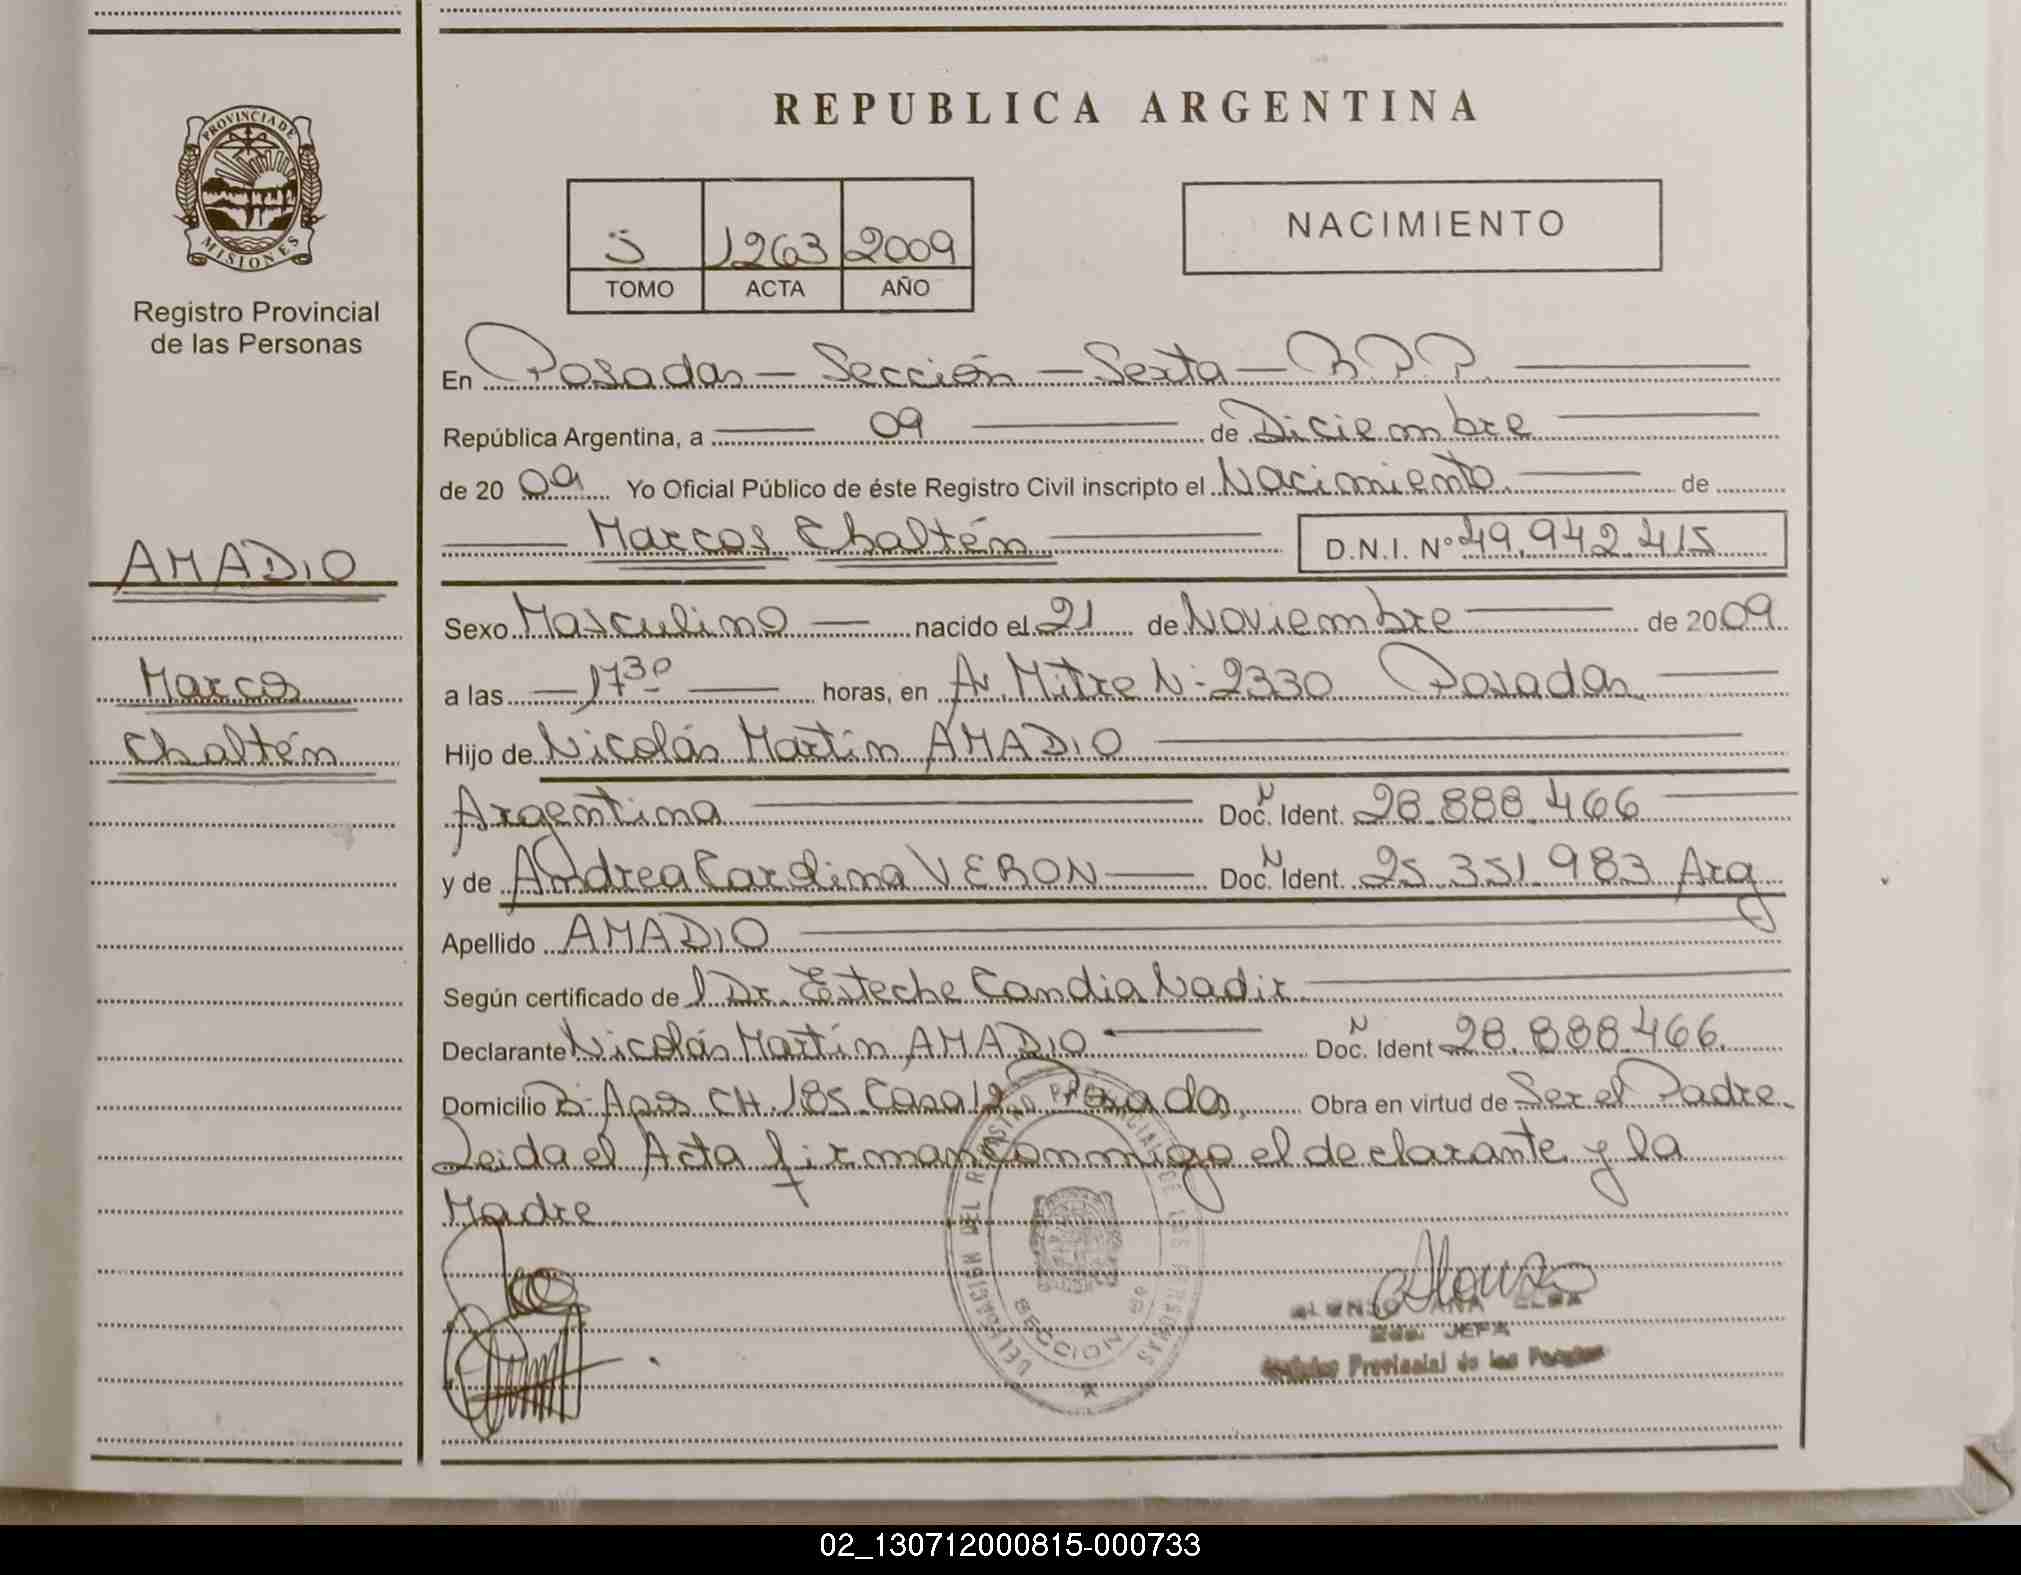 PROVINCIA DE
MISIONES
Registro Provincial
de las Personas
AMADIO
Marcos
Chaltén
REPUBLICA ARGENTINA
1263 2009
TOMO ACTA AÑO
NACIMIENTO
En Posadas - Sección - Sexta - R.P.P.
República Argentina, a 09 de Diciembre
de 20 09 Yo Oficial Público de éste Registro Civil inscripto el Nacimiento de
Marcos Chaltén D.N.I. Nº 49.942.415
Sexo Masculino nacido el 21 de Noviembre de 2009
a las 17 30 horas, en Av. Mitre N: 2330 Posadas
Hijo de Nicolás Martín AMADIO
Argentina Doc. N Ident. 28.888.466
y de Andrea Carolina VERON Doc. N Ident. 25.351.983 Arg
Apellido AMADIO
Según certificado de l Dr. Esteche Candia Nadir
Declarante Nicolás Martín AMADIO Doc. N Ident 28.888.466
Domicilio CH. 185 Casa Posadas Obra en virtud de Ser el Padre
Leida el Acta firman conmigo el declarante y la
Madre
DELEGACION DEL REGISTRO PROVINCIAL DE LAS PERSONAS
SECCION 6ª
Alonso
ALONSO ANA ELBA
2da. JEFA
Registro Provincial de las Personas
02_130712000815-000733